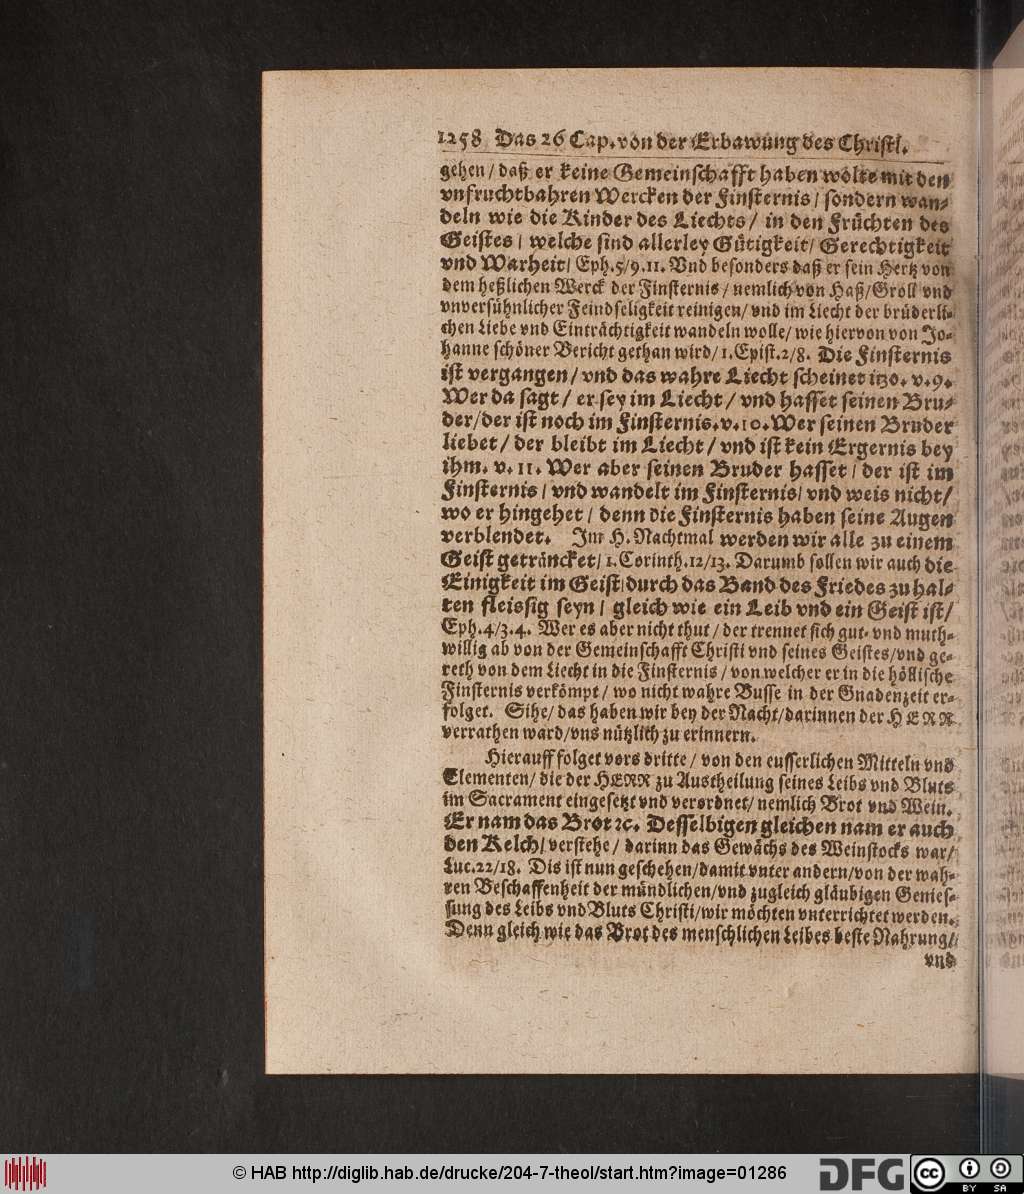 1258 Das 26 Cap. von der Erbawung des Christl.
gehen / daß er keine Gemeinschafft haben wölte mit den
vnfruchtbahren Wercken der Finsternis / sondern wan-
deln wie die Kinder des Liechts / in den Früchten des
Geistes / welche sind allerley Gütigkeit / Gerechtigkeit
vnd Warheit / Eph. 5/9. 11. Vnd besonders daß er sein Hertz von
dem heßlichen Werck der Finsternis / nemlich von Haß / Groll vnd
vnversühnlicher Feindseligkeit reinigen / vnd im Liecht der brüderli-
chen Liebe vnd Einträchtigkeit wandeln wolle / wie hiervon von Jo-
hanne schöner Bericht gethan wird / 1. Epist. 2/8. Die Finsternis
ist vergangen / vnd das wahre Liecht scheinet itzo. v. 9.
Wer da sagt / er sey im Liecht / vnd hasset seinen Bru-
der / der ist noch im Finsternis. v. 10. Wer seinen Bruder
liebet / der bleibt im Liecht / vnd ist kein Ergernis bey
ihm. v. 11. Wer aber seinen Bruder hasset / der ist im
Finsternis / vnd wandelt im Finsternis / vnd weis nicht /
wo er hingehet / denn die Finsternis haben seine Augen
verblendet. Im H. Nachtmal werden wir alle zu einem
Geist geträncket / 1. Corinth. 12/13. Darumb sollen wir auch die
Einigkeit im Geist / durch das Band des Friedes zu hal-
ten fleissig seyn / gleich wie ein Leib vnd ein Geist ist /
Eph. 4/3. 4. Wer es aber nicht thut / der trennet sich gut- vnd muth-
willig ab von der Gemeinschafft Christi vnd seines Geistes / vnd ge-
reth von dem Liecht in die Finsternis / von welcher er in die höllische
Finsternis verkömpt / wo nicht wahre Busse in der Gnadenzeit er-
folget. Sihe / das haben wir bey der Nacht / darinnen der HERR
verrathen ward / vns nützlich zu erinnern.
Hierauff folget vors dritte / von den eusserlichen Mitteln vnd
Elementen / die der HERR zu Austheilung seines Leibs vnd Bluts
im Sacrament eingesetzt vnd verordnet / nemlich Brot vnd Wein.
Er nam das Brot ꝛc. Desselbigen gleichen nam er auch
den Kelch / verstehe / darinn das Gewächs des Weinstocks war /
Luc. 22/18. Dis ist nun geschehen / damit vnter andern / von der wah-
ren Beschaffenheit der mündlichen / vnd zugleich gläubigen Genies-
sung des Leibs vnd Bluts Christi / wir möchten vnterrichtet werden.
Denn gleich wie das Brot des menschlichen Leibes beste Nahrung /
vnd
© HAB http://diglib.hab.de/drucke/204-7-theol/start.htm?image=01286
DFG
cc BY SA